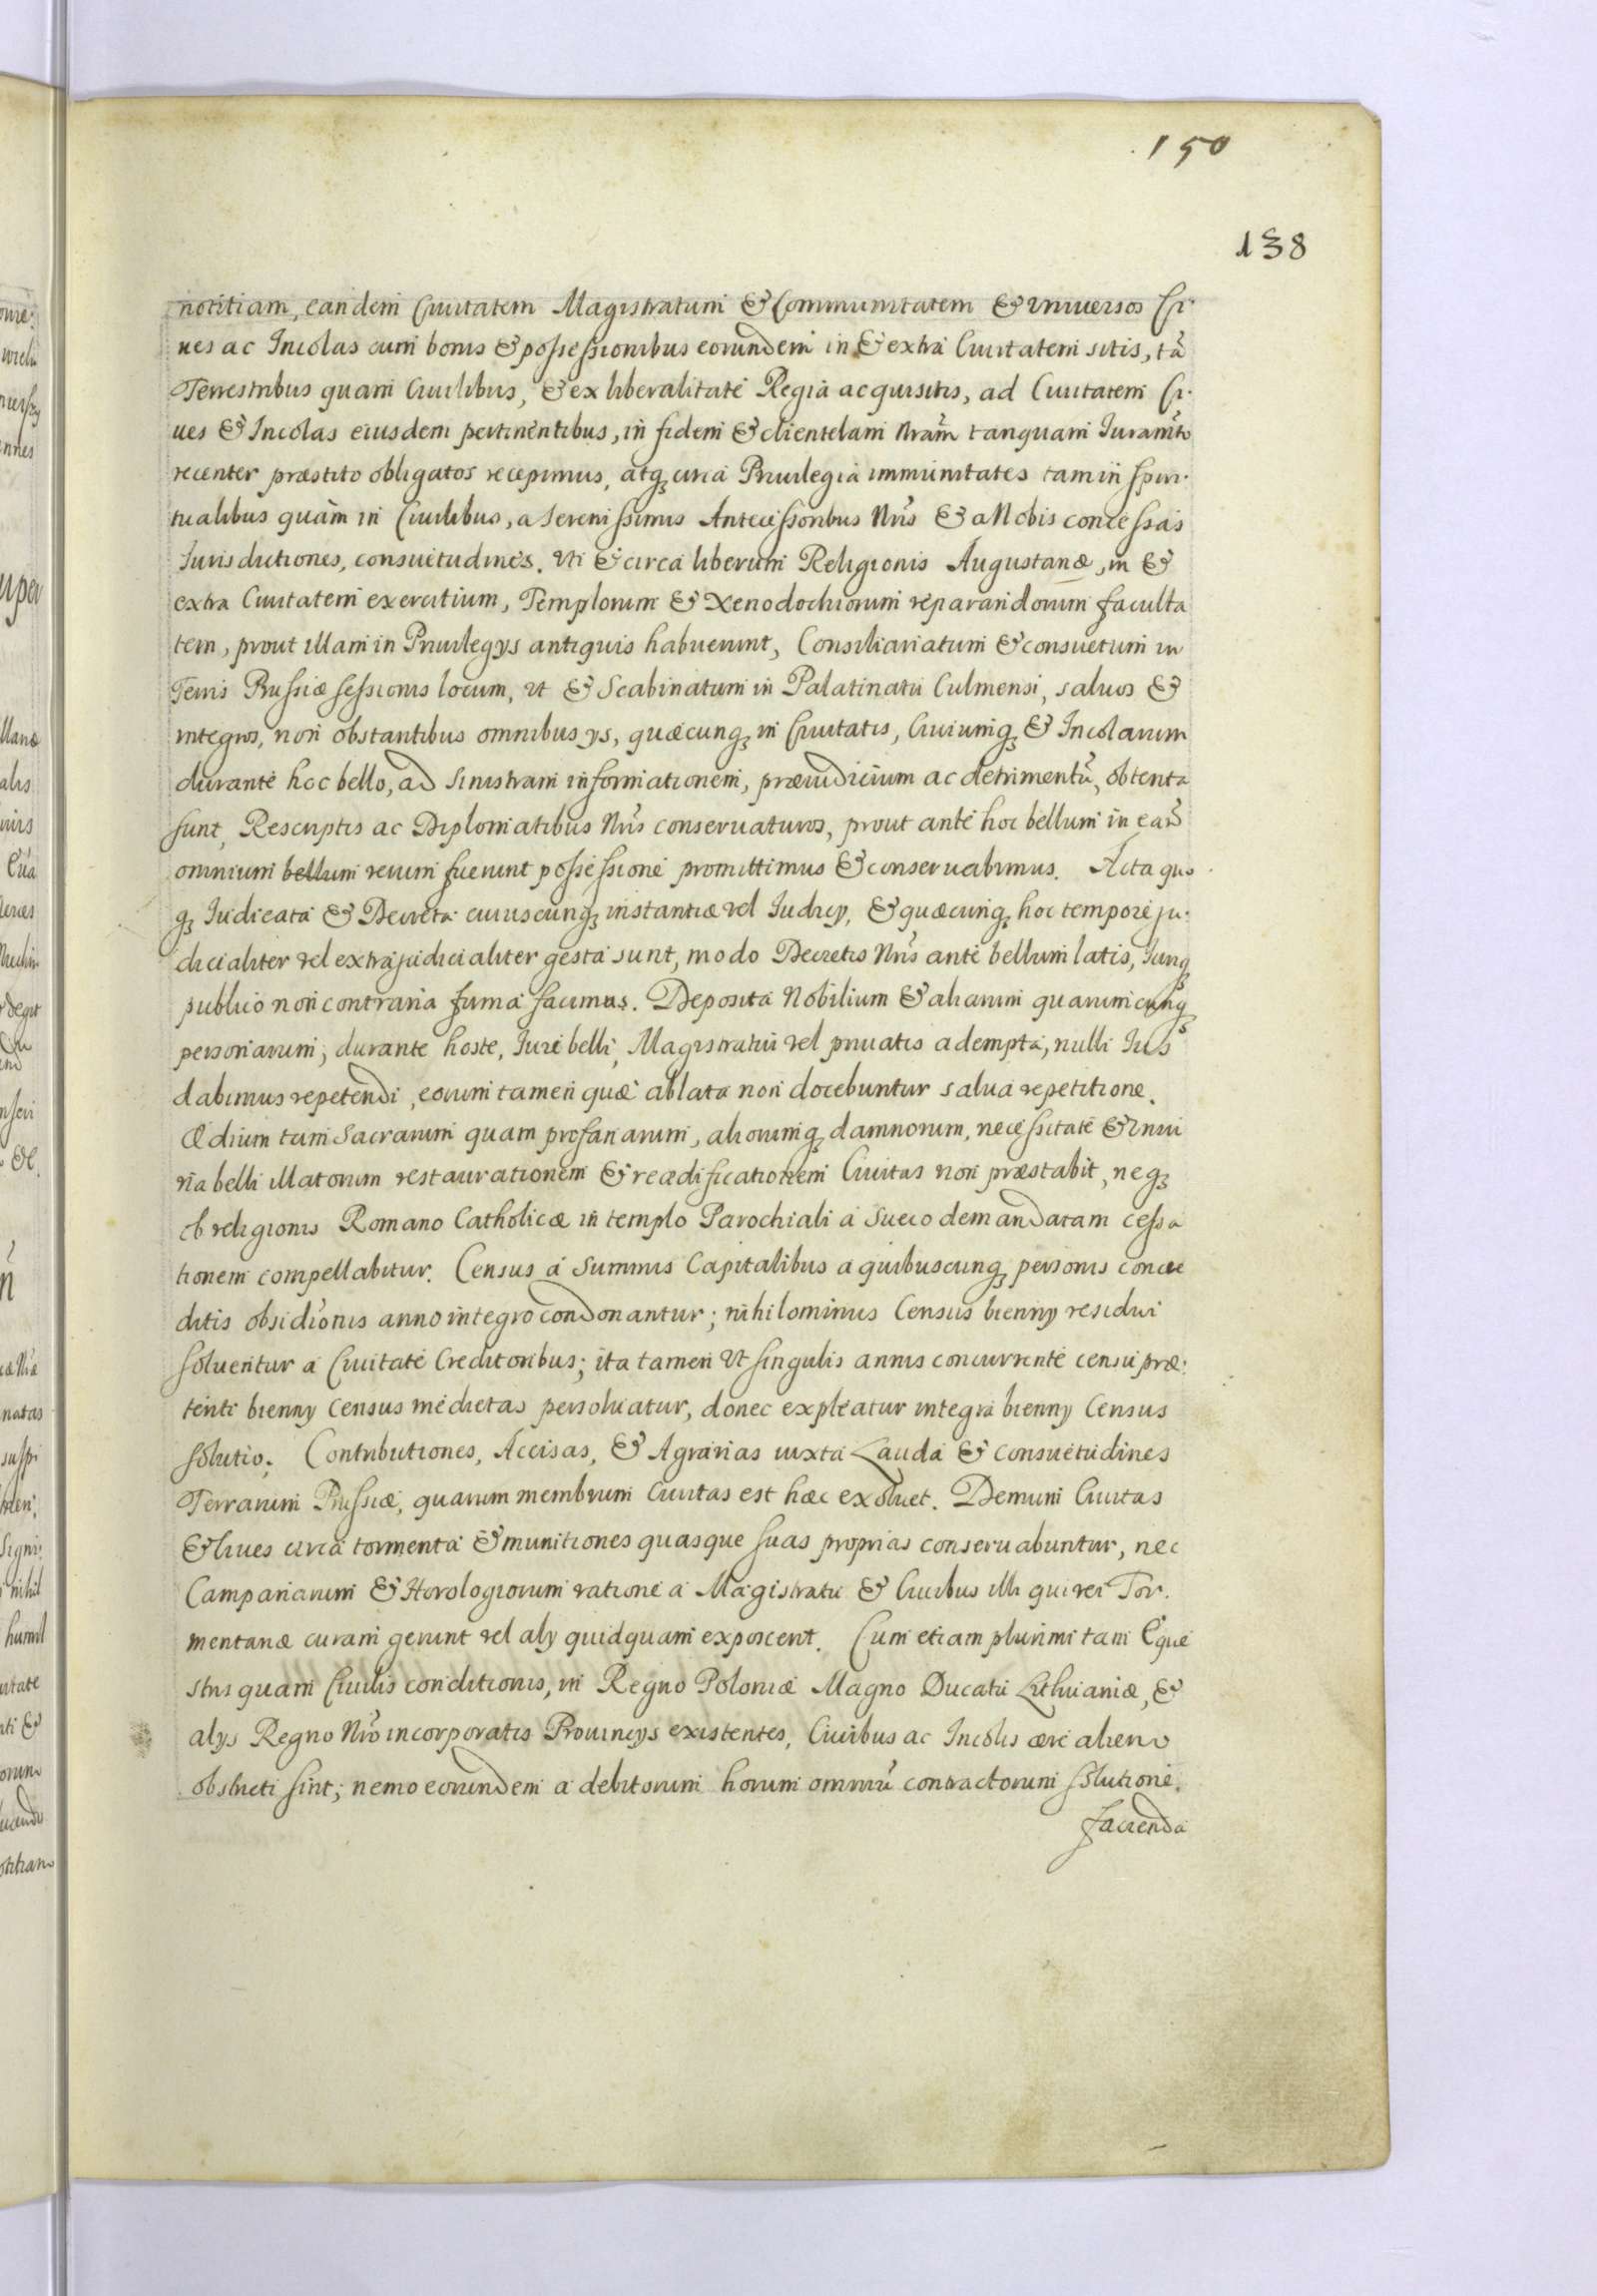 150
138
notitiam, eandem Civitatem Magistratum & Communitatem & Universos Ci-
ves ac Incolas cum bonis & possessionibus eorundem in & extra Civitatem sitis, tã
Terrestribus quam Civilibus, & ex liberalitate Regia acquisitis, ad Civitatem Ci-
ves & Incolas eiusdem pertinentibus, in fidem & clientelam Nram̃ tanquam Juram̃to
recenter præstito obligatos recepimus, atq; circa Privilegia immunitates tam in spiri-
tualibus quàm in Civilibus, a Serenissimis Antecessoribus Nris̃ & a Nobis concessas
Jurisdictiones, consuetudines. Uti & circa liberum Religionis Augustanæ, in &
extra Civitatem exercitium, Templorum & Xenodochiorum reparandorum faculta
tem, prout illam in Privilegys antiquis habuerunt, Consiliariatum & consuetum in
Terris Prussiæ sessionis locum, ut & Scabinatum in Palatinatu Culmensi, salvos &
integros, non obstantibus omnibus ys, quæcunq; in Civitatis, Civiumq; & Incolarum
durante hoc bello, ad sinistram informationem, præiudicium ac detrimentũ, obtenta
sunt, Rescriptis ac Diplomatibus Nris̃ conservaturos, prout ante hoc bellum in eañd
omnium bellum rerum fuerunt possessione promittimus & conservabimus. Acta quo
q; Judicata & Decreta cuiuscunq; instantiæ vel Judicy, & quæcunq; hoc tempore ju-
dicialiter vel extrajudicialiter gesta sunt, modo Decretis Nris̃ ante bellum latis, Juriq;
publico non contraria firma facimus. Deposita Nobilium & aliarum quarumcunq;
personarum, durante hoste, Jure belli, Magistratui vel privatis adempta, nulli Jus
dabimus repetendi, eorum tamen quæ ablata non docebuntur salva repetitione.
Ædium tam Sacrarum quam profanarum, aliorumq; damnorum, necessitate & iniu
ria belli illatorum restaurationem & reædificationem Civitas non præstabit, neq;
ob religionis Romano Catholicæ in templo Parochiali a Sueco demandatam cessa
tionem compellabitur. Census a Summis Capitalibus a quibuscunq; personis concre
ditis obsidionis anno integro condonantur; nihilominus Census bienny residui
solventur a Civitate Creditoribus; ita tamen ut singulis annis concurrente censu præ-
tenti bienny Census medietas persolvatur, donec expleatur integra bienny Census
solutio. Contributiones, Accisas, & Agrarias iuxta Lauda & consuetudines
Terrarum Prussiæ, quarum membrum Civitas est hæc exolvet. Demum Civitas
& Cives circa tormenta & munitiones quasque suas proprias conservabuntur, nec
Campanarum & Horologiorum ratione a Magistratu & Civibus illi qui rei Tor-
mentariæ curam gerunt vel aly quidquam exposcent. Cum etiam plurimi tam Eque
stris quam Civilis conditionis, in Regno Poloniæ Magno Ducatu Lithuaniæ, &
alys Regno Nrõ incorporatis Provincys existentes, Civibus ac Incolis ære alieno
obstricti sint; nemo eorundem a debitorum horum omniũ contractorum solutione,
facienda